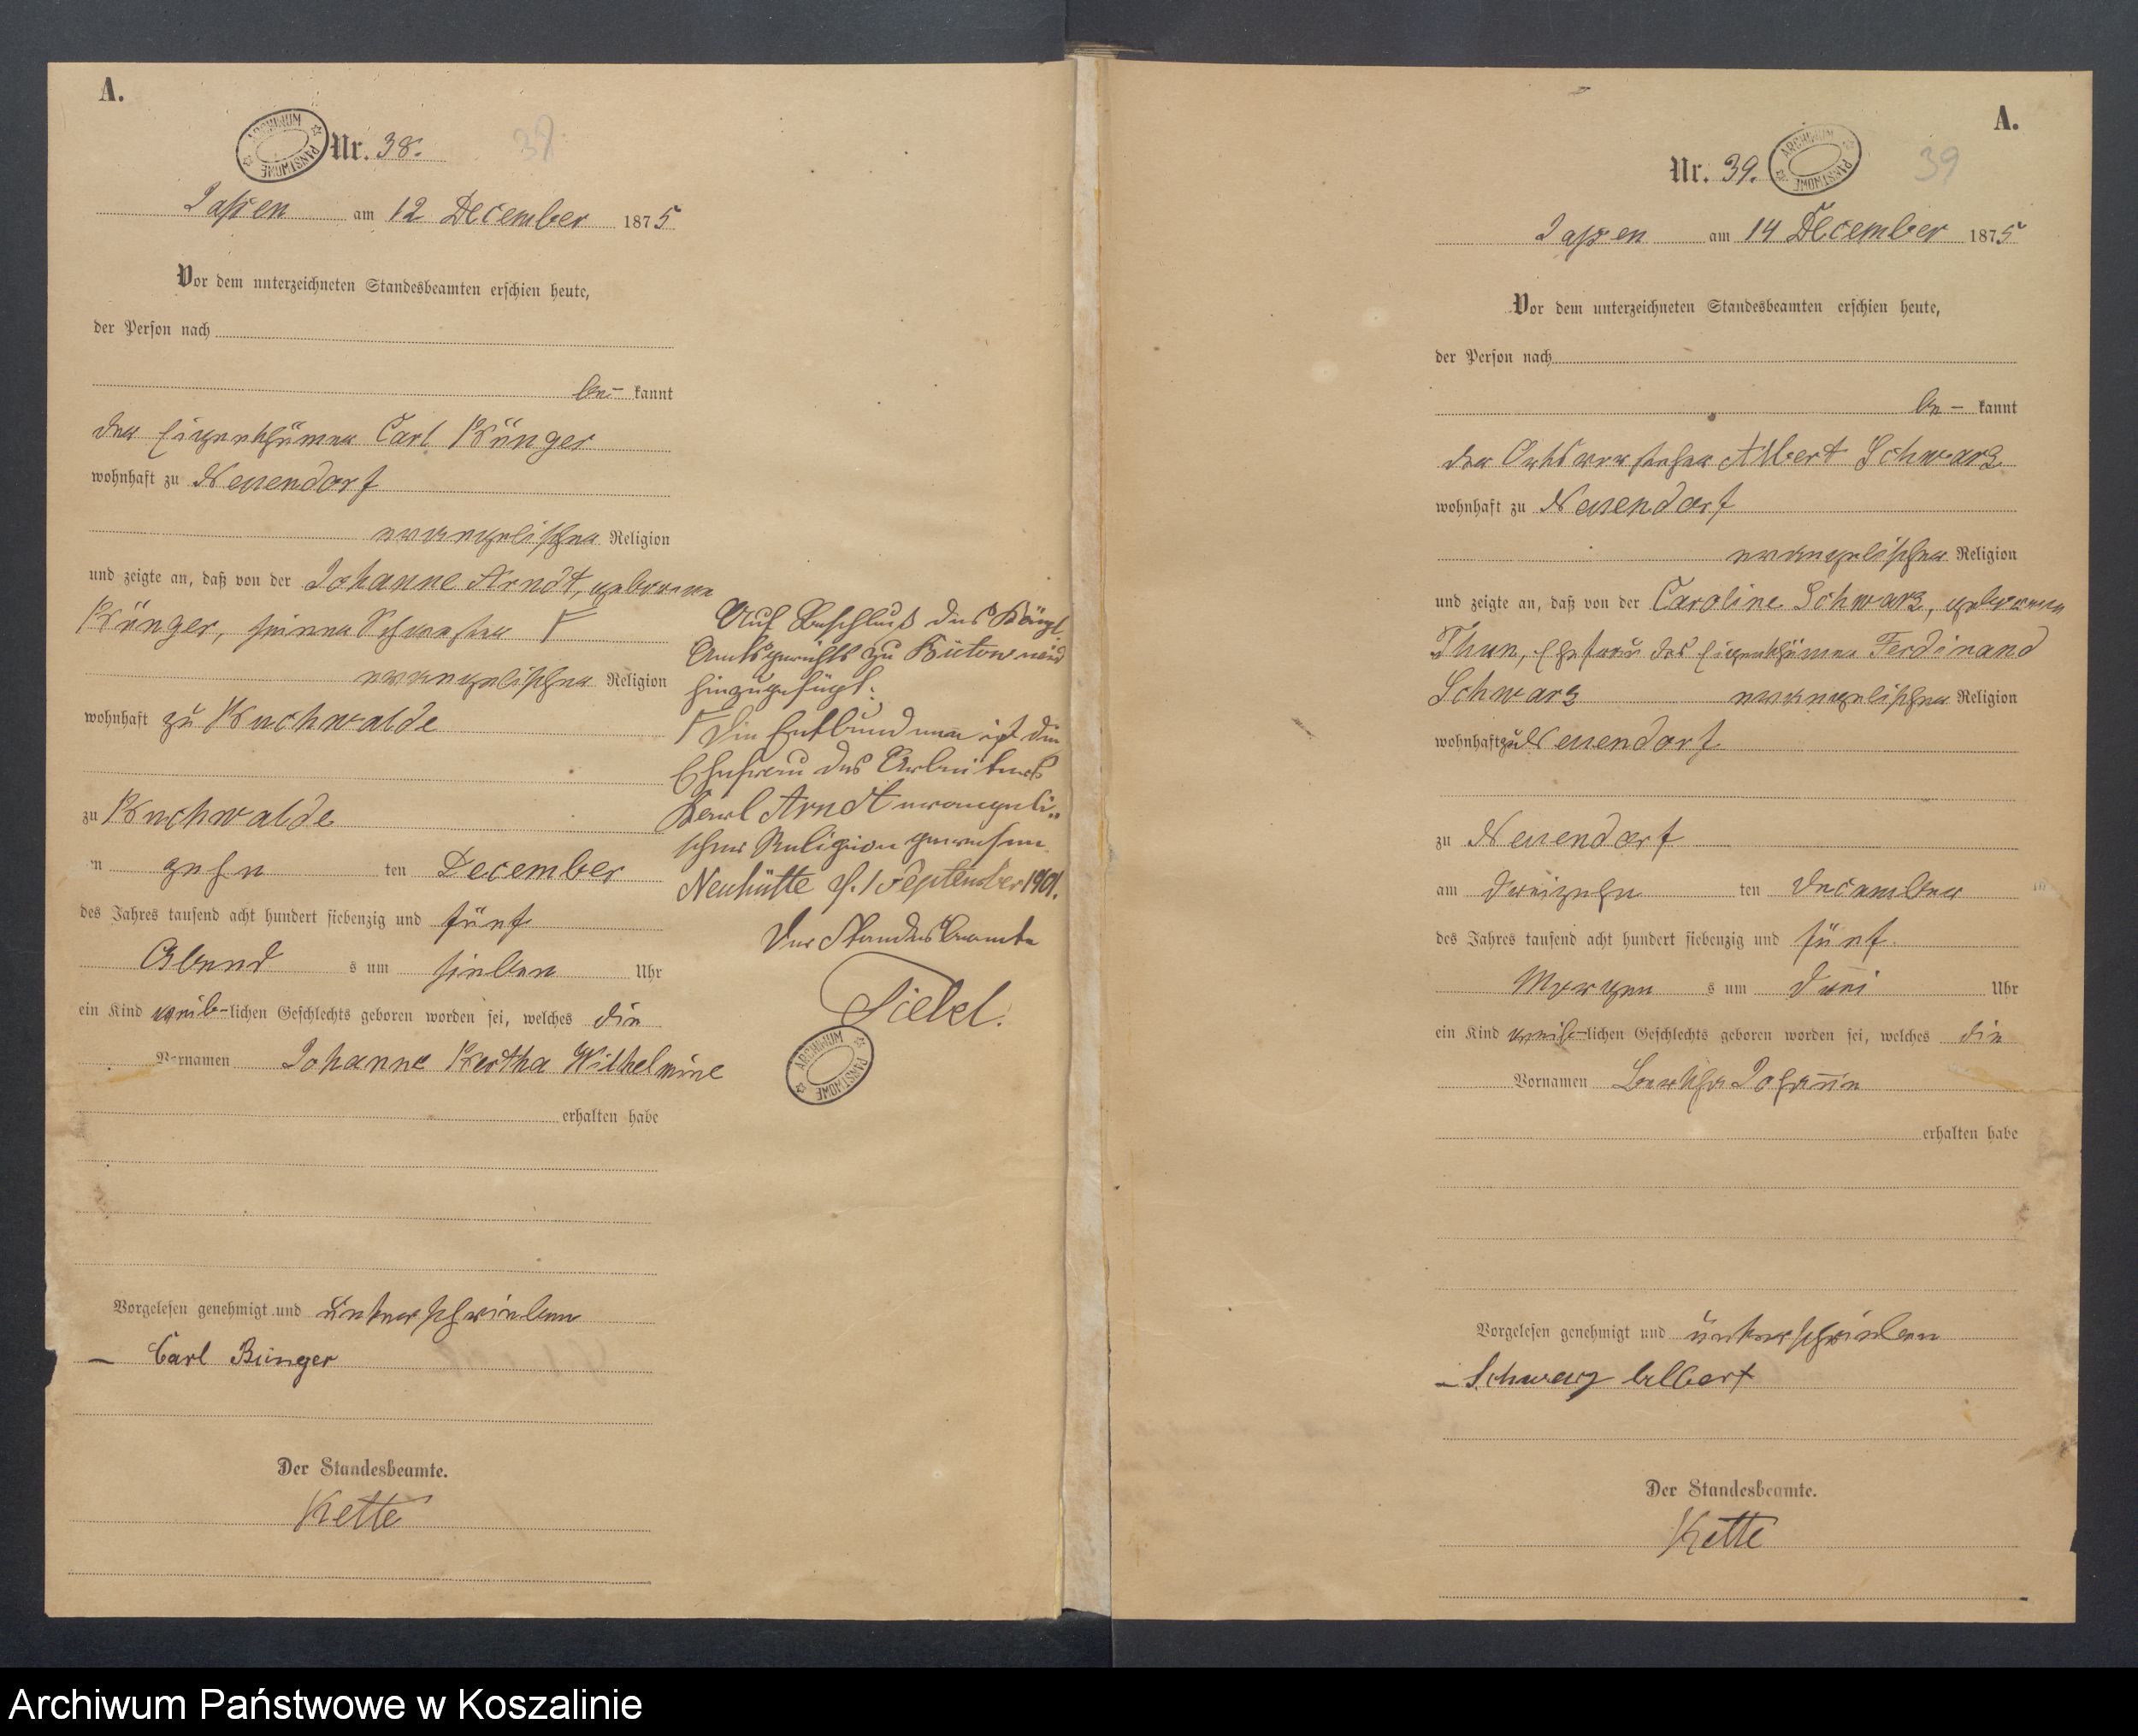 A.
ARCHIWUM PAŃSTWOWE
Nr. 38.
Jassen am 12 December 1875
Vor dem unterzeichneten Standesbeamten erschien heute,
der Person nach
be- kannt
der Eigenthümer Carl Bünger
wohnhaft zu Neuendorf
evangelischer Religion
und zeigte an, daß von der Johanne Arndt, geborene
Bünger, seiner Schwester Γ
evangelischer Religion
wohnhaft zu Buchwalde
zu Buchwalde
am zehn ten December
des Jahres tausend acht hundert siebenzig und fünf
Abend s um sieben Uhr
ein Kind weib-lichen Geschlechts geboren worden sei, welches die
Vornamen Johanne Bertha Wilhelmine
erhalten habe
Vorgelesen genehmigt und unterschrieben
– Carl Bünger
Der Standesbeamte.
Kette
Auf Beschluß des Königl.
Amtsgerichts zu Bütow wird
hinzugefügt:
Γ Die Entbundene ist die
Ehefrau des Arbeiters
Karl Arndt evangeli„
scher Religion gewesen.
Neuhütte d. 1 September 1901.
Der Standesbeamte
Fiebel.
ARCHIWUM PAŃSTWOWE
A.
Nr. 39.
ARCHIWUM PAŃSTWOWE
39
Jassen am 14 December 1875
Vor dem unterzeichneten Standesbeamten erschien heute,
der Person nach
be- kannt
der Ortsvorsteher Albert Schwarz
wohnhaft zu Neuendorf
evangelischer Religion
und zeigte an, daß von der Caroline Schwarz, geborene
Thun, Ehefrau des Eigenthümer Ferdinand
Schwarz evangelischer Religion
wohnhaft zu Neuendorf
zu Neuendorf
am dreizehn ten December
des Jahres tausend acht hundert siebenzig und fünf
Morgen s um drei Uhr
ein Kind weib-lichen Geschlechts geboren worden sei, welches die
Vornamen Bertha Johanne
erhalten habe
Vorgelesen genehmigt und unterschrieben
– Schwarz Albert
Der Standesbeamte.
Kette
Archiwum Państwowe w Koszalinie